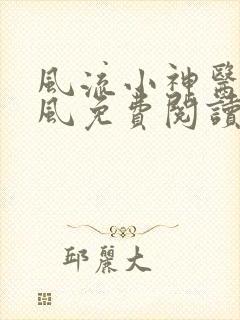 風流小神醫
風免費閱讀
邱麗大